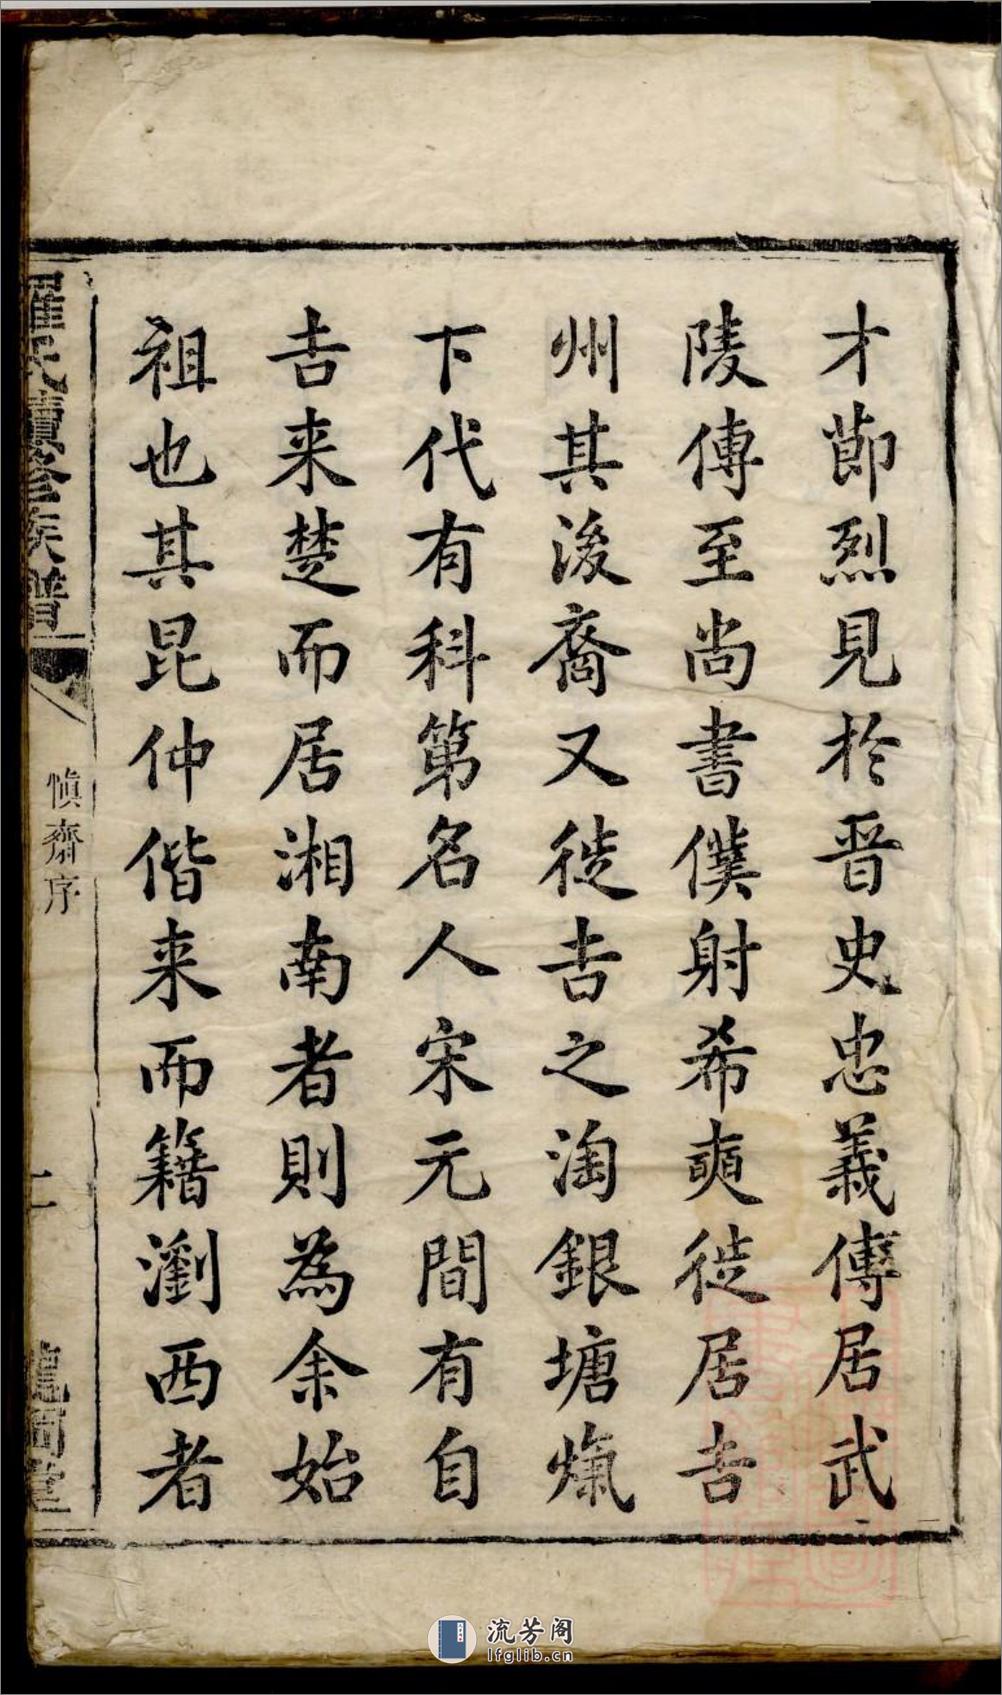 才節烈見扵晋史忠義傳居武
陵傳至尚書僕射希奭徙居吉
州其後裔又徙吉之淘銀塘㷼
下代有科第名人宋元間有自
吉来楚而居湘南者則為余始
祖也其昆仲偕来而籍瀏西者
羅氏續修族譜
慎齋序
二
流芳阁
lfglib.cn